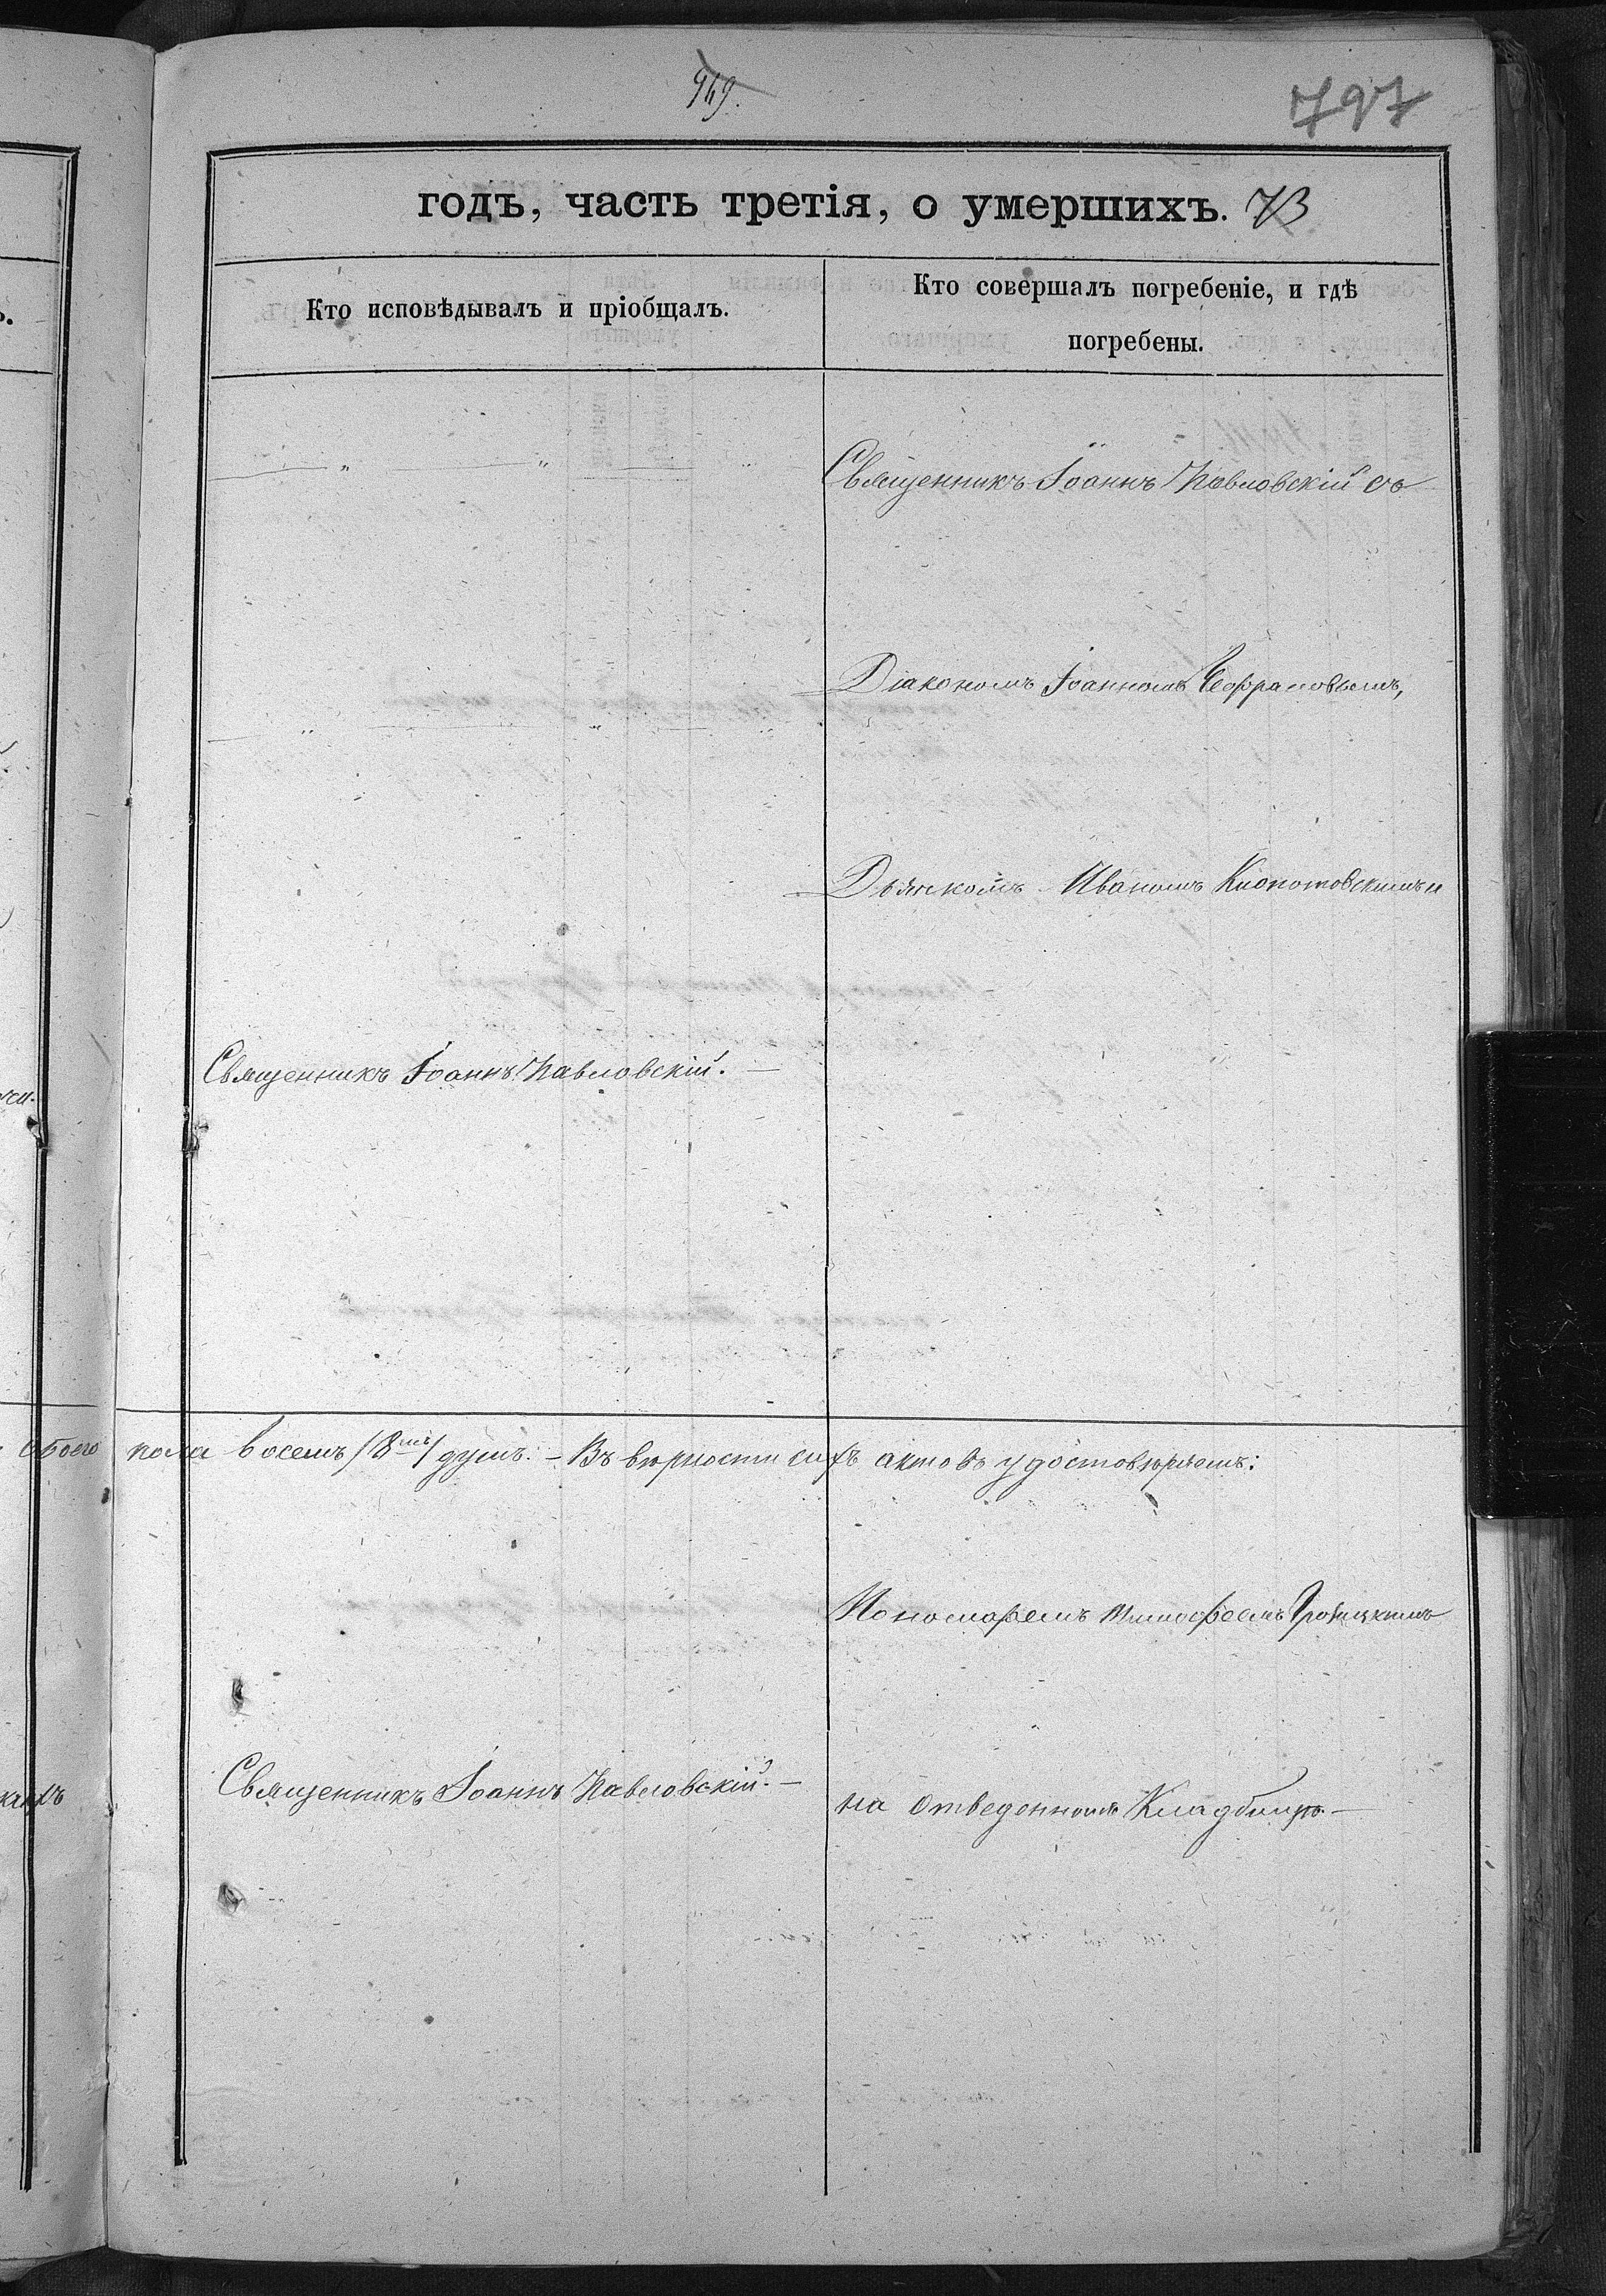 969.
797
годъ, часть третія, о умершихъ. 73
Кто исповѣдывалъ и пріобщалъ.
Кто совершалъ погребеніе, и гдѣ
погребены.
Священникъ Іоаннъ Павловскій съ
Діакономъ Іоанномъ
Дьячкомъ Иваномъ Клопотовскимъ и
Священникъ Іоаннъ Павловскій. —
обоего пола восемь /8мь/ душъ. – Въ вѣрности сихъ актовъ удостовѣряемъ:
Пономаремъ Тимофеемъ
Священникъ Іоаннъ Павловскій. —
на отведенномъ Кладбищѣ. —